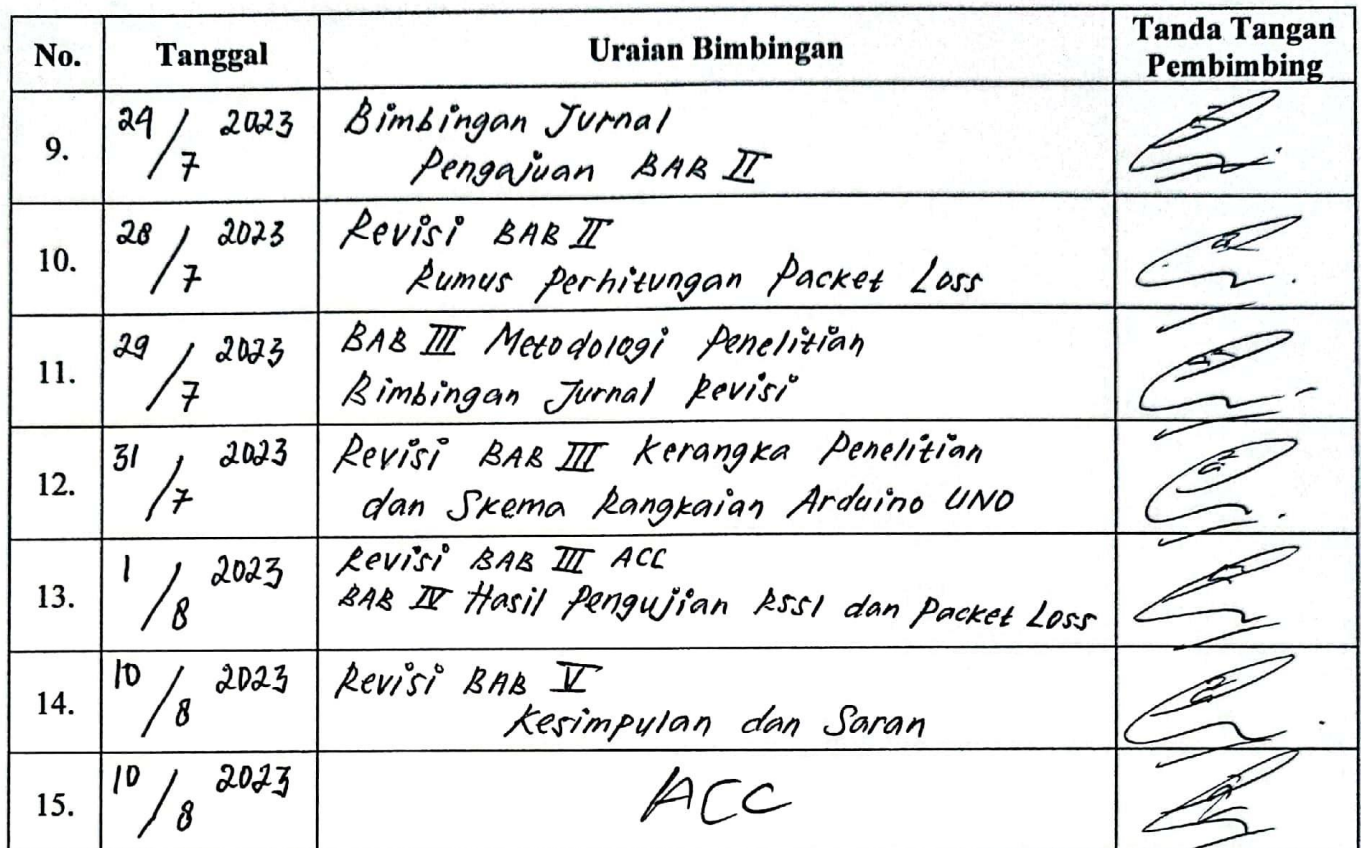 No. Tanggal Uraian Bimbingan Tanda Tangan Pembimbing
9. 24/7 2023 Bimbingan Jurnal
Pengajuan BAB II
10. 28/7 2023 Revisi BAB II
Rumus Perhitungan Packet Loss
11. 29/7 2023 BAB III Metodologi Penelitian
Bimbingan Jurnal Revisi
12. 31/7 2023 Revisi BAB III Kerangka Penelitian
dan Skema Rangkaian Arduino UNO
13. 1/8 2023 Revisi BAB III ACC
BAB IV Hasil Pengujian RSSI dan Packet Loss
14. 10/8 2023 Revisi BAB V
Kesimpulan dan Saran
15. 10/8 2023 ACC